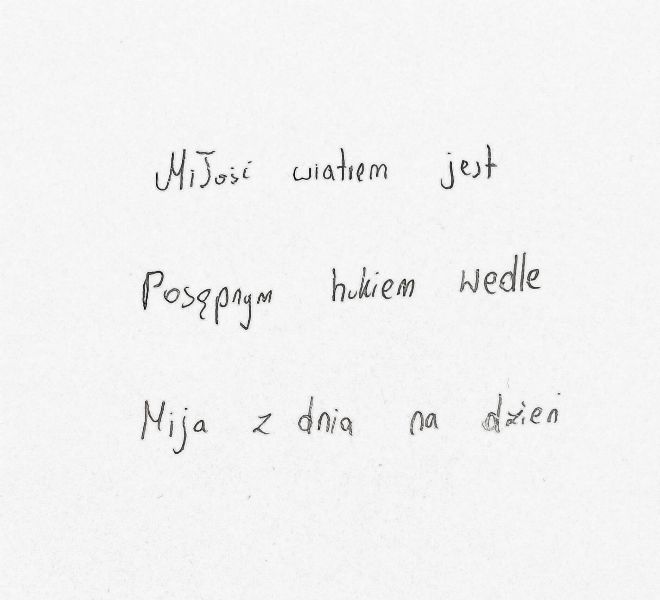 Miłość wiatrem jest
Posępnym hukiem wedle
Mija z dnia na dzień